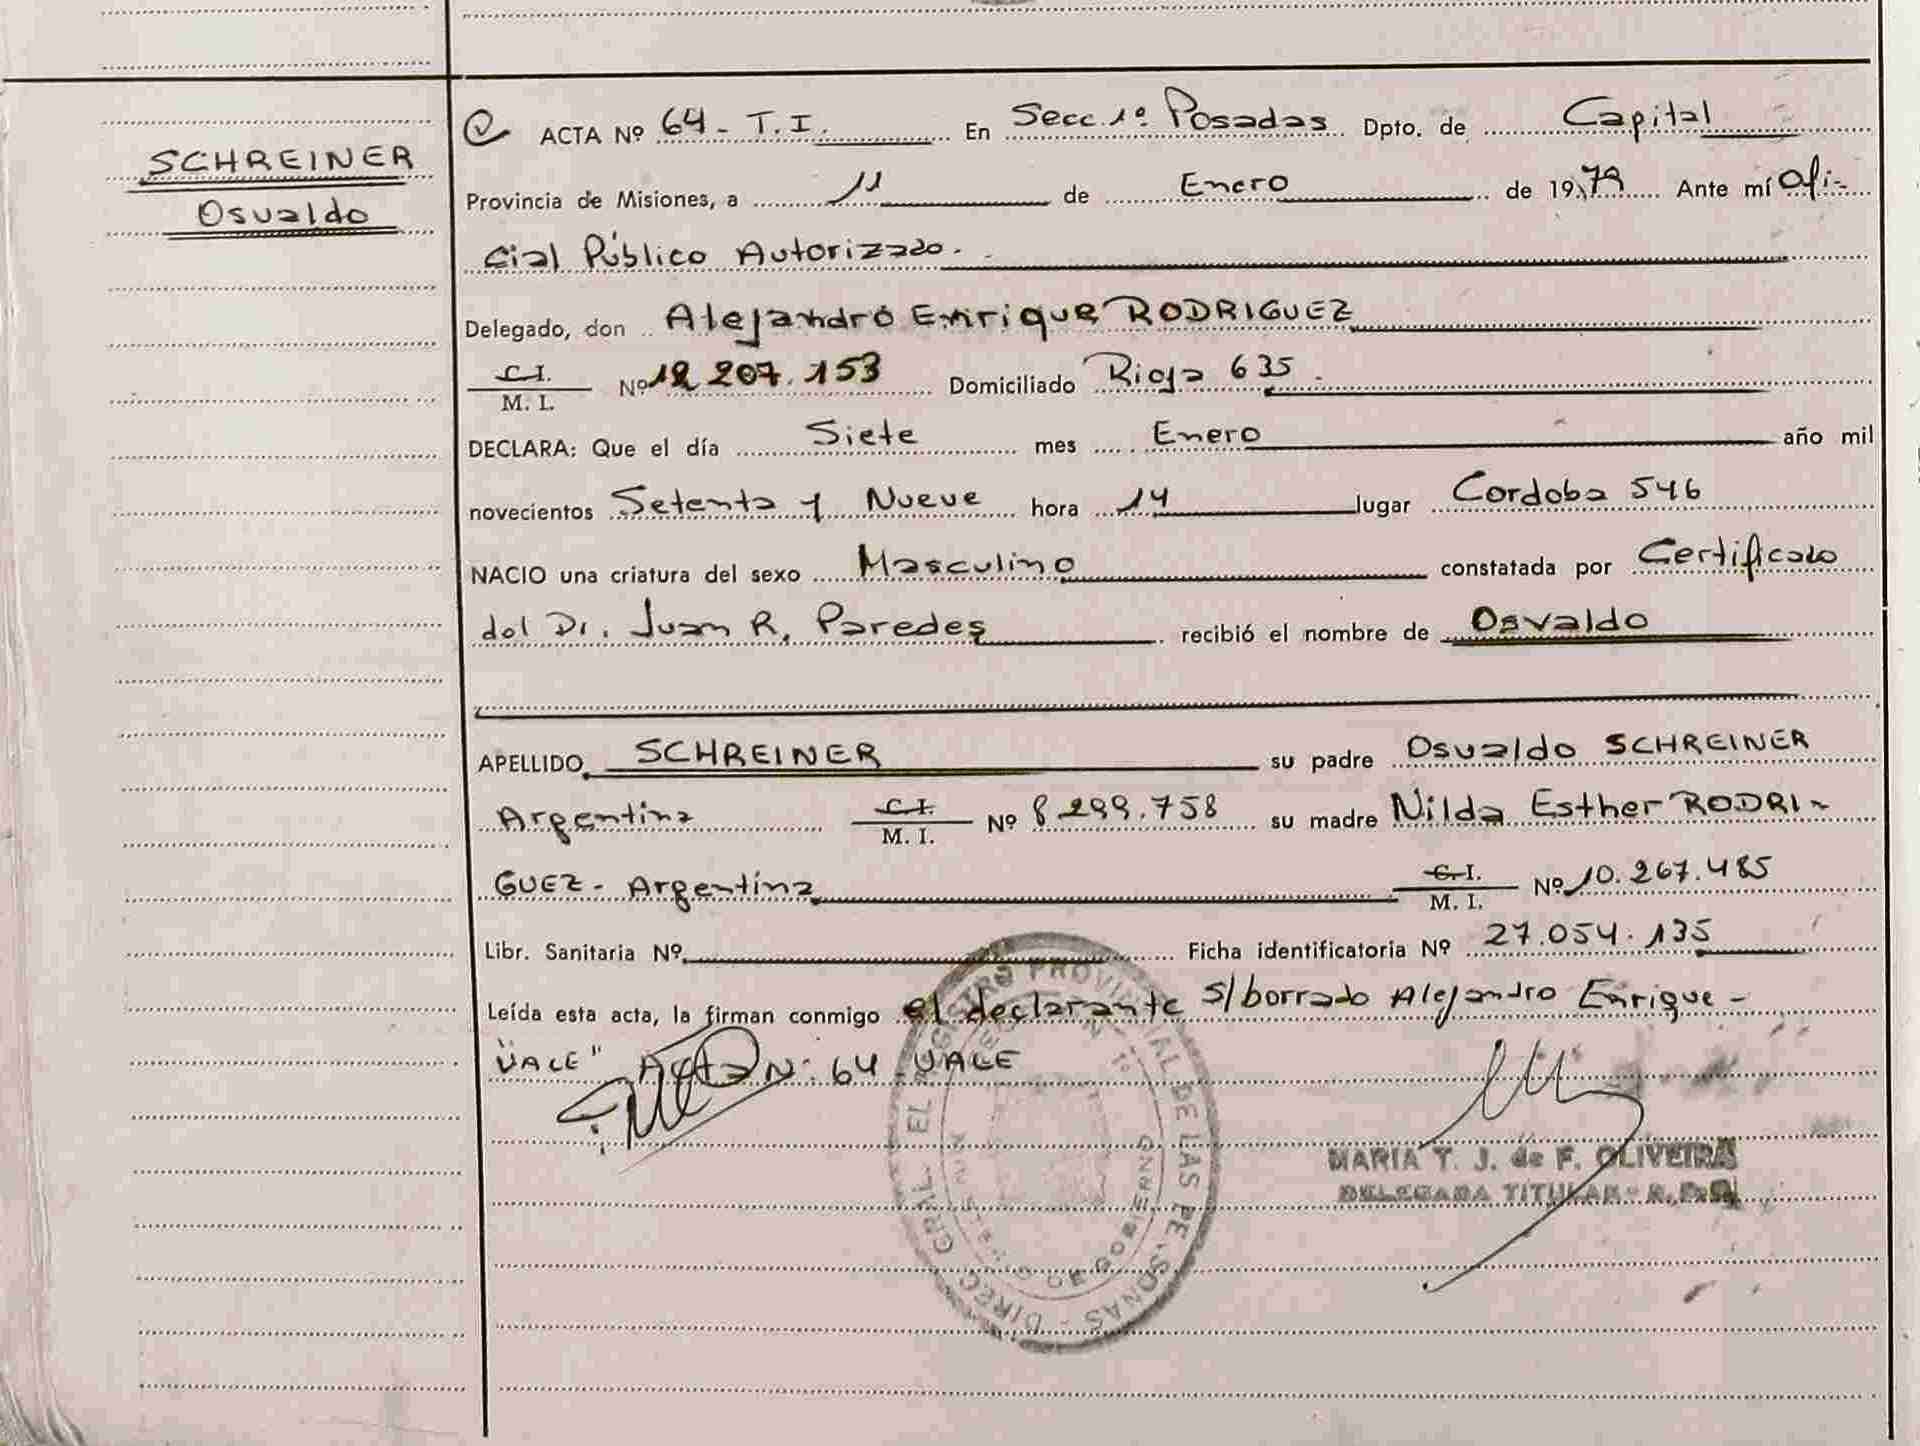 SCHREINER
Osvaldo
ACTA Nº 64 - T.I. En Secc. 1º Posadas Dpto. de Capital
Provincia de Misiones, a 11 de Enero de 1979 Ante mí Ofi-
cial Público Autorizado.
Delegado, don Alejandro Enrique RODRIGUEZ
C.I.
M. I. Nº 12 207.153 Domiciliado Rioja 635.
DECLARA: Que el día Siete mes Enero año mil
novecientos Setenta y Nueve hora 14 lugar Cordoba 546
NACIO una criatura del sexo Masculino constatada por Certificado
del Dr. Juan R. Paredes recibió el nombre de Osvaldo
APELLIDO SCHREINER su padre Osvaldo SCHREINER
Argentina C.I. M. I. Nº 8 299.758 su madre Nilda Esther RODRI-
GUEZ - Argentina C. I. M. I. Nº 10.267.485
Libr. Sanitaria Nº Ficha identificatoria Nº 27.054.135
Leída esta acta, la firman conmigo el declarante s/borrado Alejandro Enrique -
"VALE" Acta Nº 64 VALE
MARIA T. J. de F. OLIVEIRA
DELEGADA TITULAR - R.P.
DIRECC. GRAL. EL REGISTRO PROVINCIAL DE LAS PERSONAS
MINISTERIO DE GOBIERNO